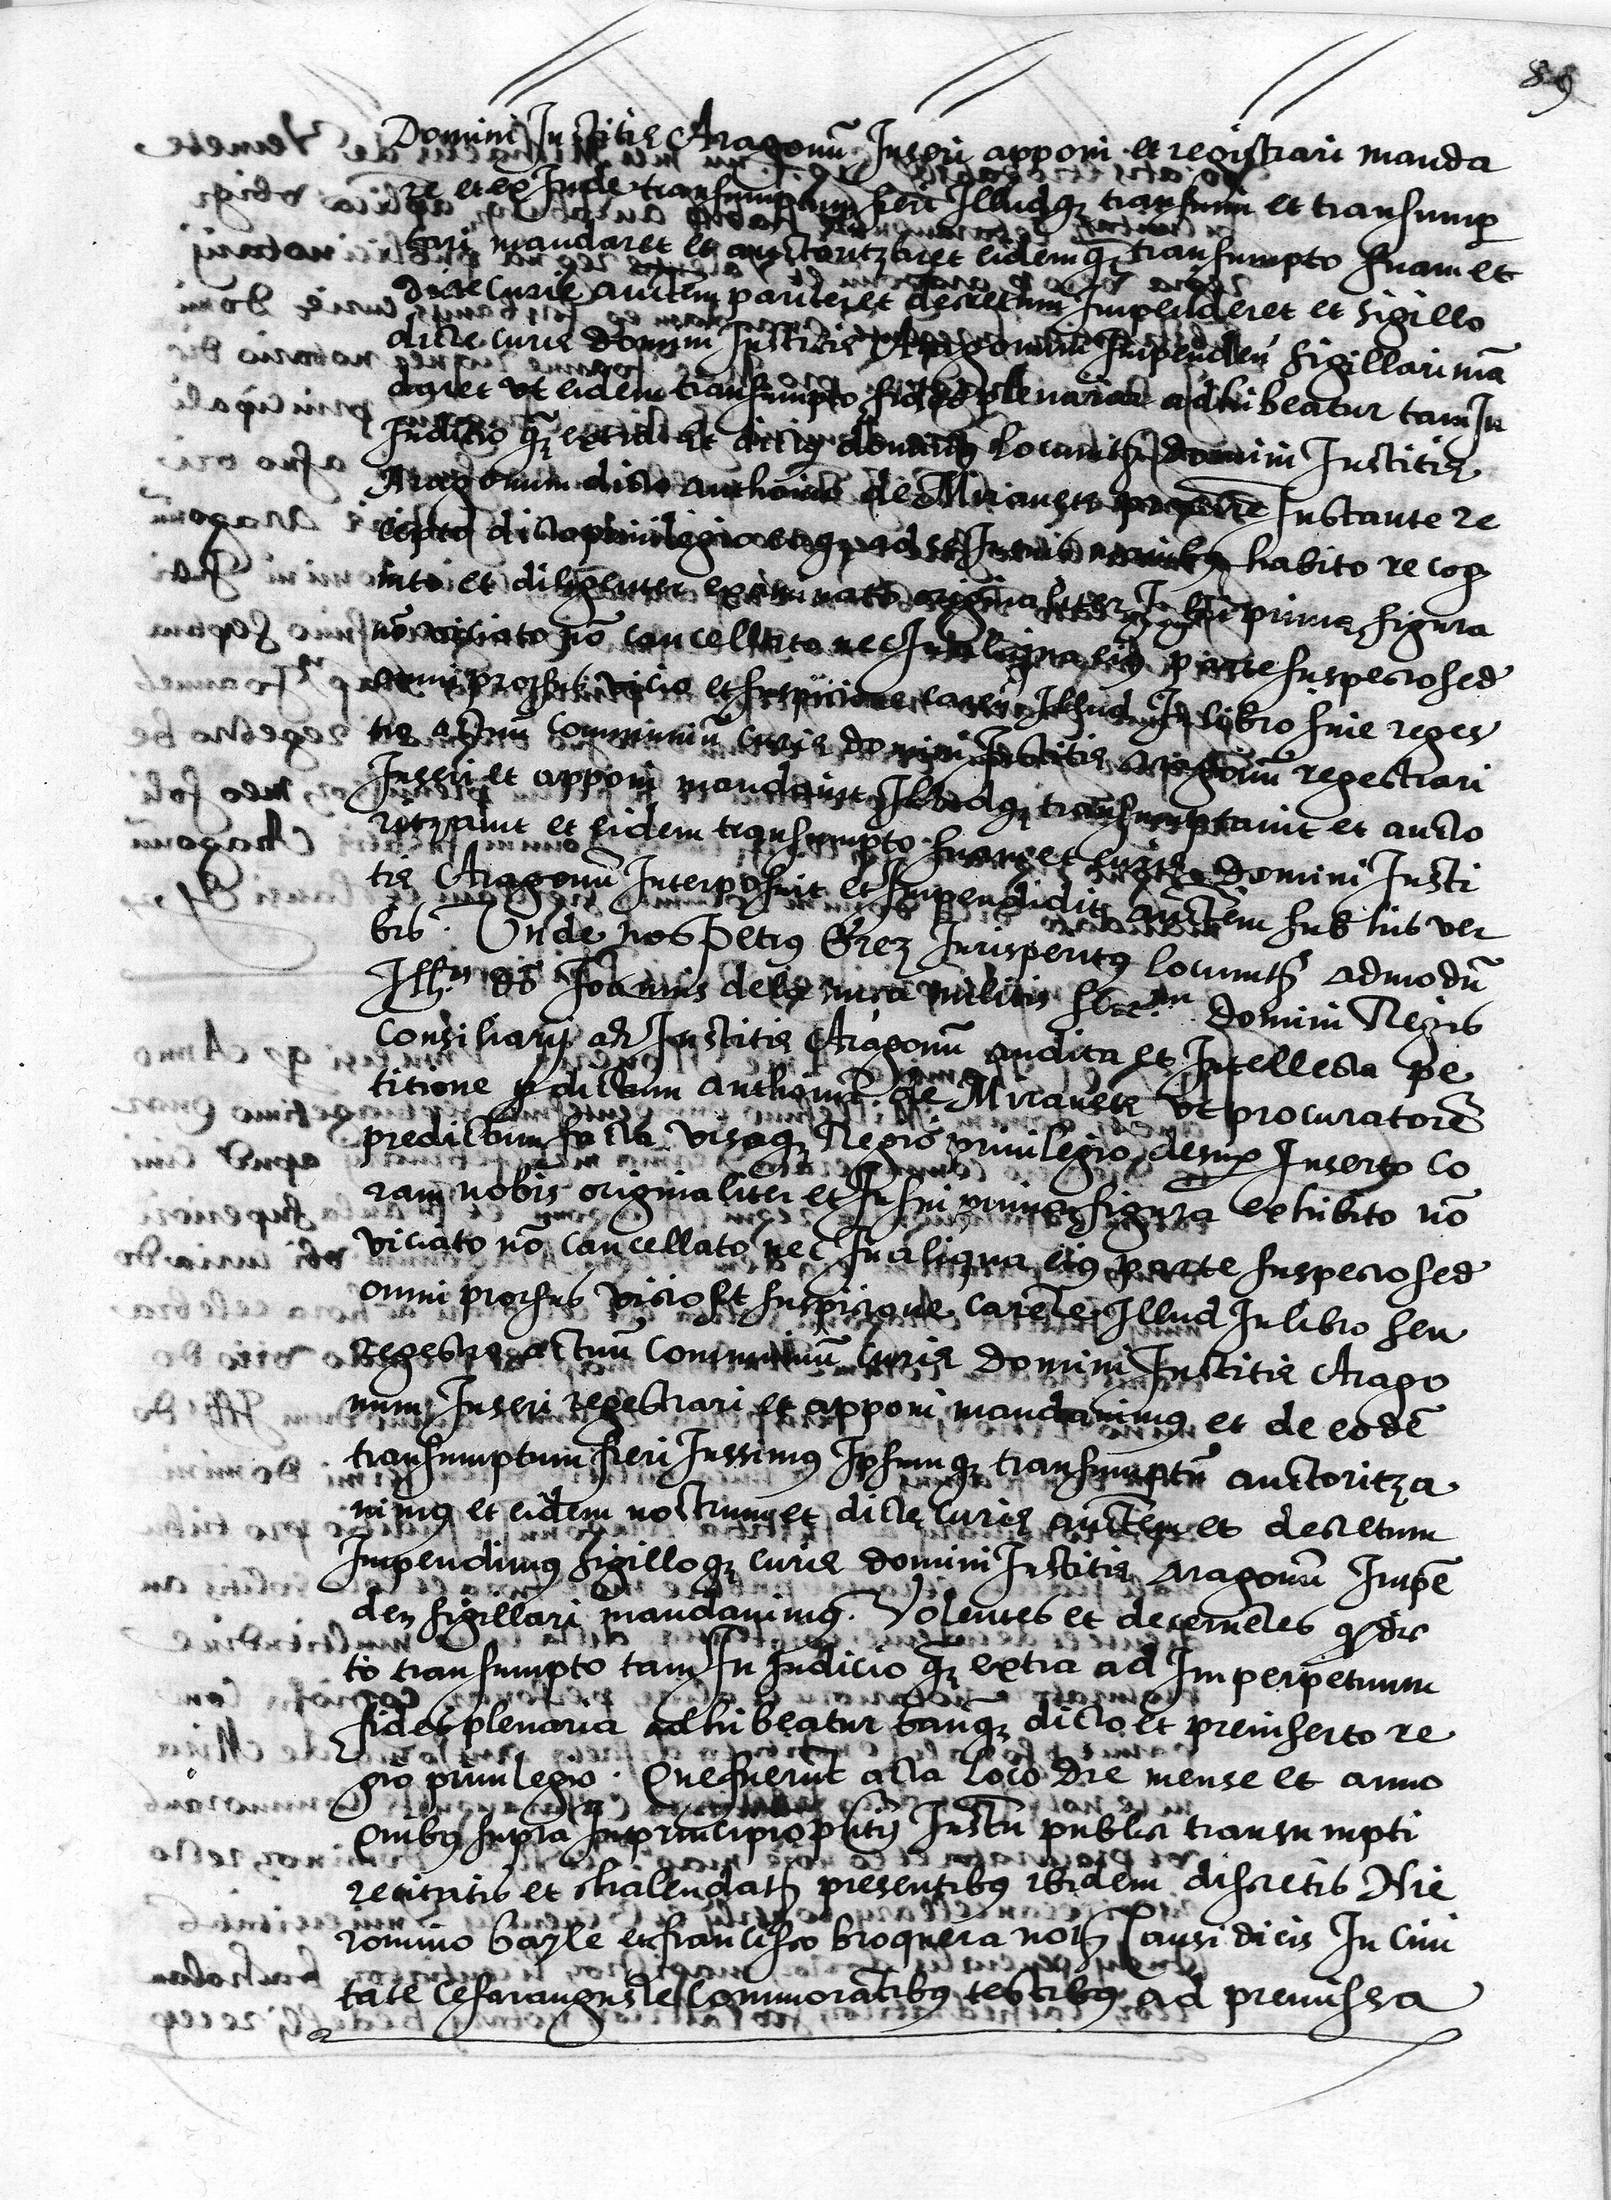 89
Domini Justitie Aragonū Inseri apponi et registrari manda
re et ex Inde transumptum fieri Illudq̨ transumi et transump
tari mandaret et auctoritzaret eidemq̨ transumpto suam et
dicte Curie auctem pariter et decretum Impenderet et sigillo
dicte Curie Domini Justitie Aragonum Impenden̄ sigillari mā
daret vt eidem transumpto fides plenaria adhibeatur tam In
Juditio q̨ extra Et dictus dominus locumts̄ domini Justitie
Aragonum dicto anthonio de Mirauete Instante re
cepto dicto priuilegio habito recog
nito et diligenter examinato originaliter In sui prima figura
nō viciato nō cancellato nec In aliqua eius parte suspecto sed
omni prorsus vicio et suspicione caren̄ Illud In libro siue reges
tro actuū Communiū Curie domini Justitie Aragonū regestrari
Inseri et apponi mandauit Illudq̨ transumptauit et aucto
ritzauit et eidem transumpto suam et curie domini Justi
tie Aragonū Interposuit et Impendidit auctem sub his ver
bis. Unde nos Petrus Grez Jurisperitus locumts̄ admodū
Ill.is dō Joannis dela nuca militis Domini Regis
Consiliarij ac Justitie Aragonū audita et Intellecta pe
titione p dictum anthoniū de Mirauete vt procuratorē
predictum facta visoq̨ Regio priuilegio desup Inserto co
ram nobis originaliter et In sui prima figura exhibito nō
viciato nō cancellato nec In aliqua eius parte suspecto sed
omni prorsus vicio et suspicione carente Illud In libro seu
Regestro actuū Communiū Curie Domini Justitie Arago
num Inseri regestrari et apponi mandauimus et de eodē
transumptum fieri Jussimus Ipsumq̨ transumptū auctoritza
uimus et eidem nostrum et dicte Curie auctem et decretum
Impendimus sigilloq̨ curie domini Justitie Aragonū Impē
den̄ sigillari mandauimus. Volentes et decernētes q̄ dic
to transumpto tam In Judicio q̨ extra ad Imperpetuum
fides plenaria adhibeatur tanq̨ dicto et preinserto re
gio priuilegio. Que fuerūt acta loco die mense et anno
quibus supra In principio pn̄tis Instrī publici transumpti
recitatis et chalendatis presentibus ibidem discretis Hie
ronimo bayle et francisco broquera nots̄ Causidicis In Ciui
tate Cesarauguste Commorātibus testibus ad premissa